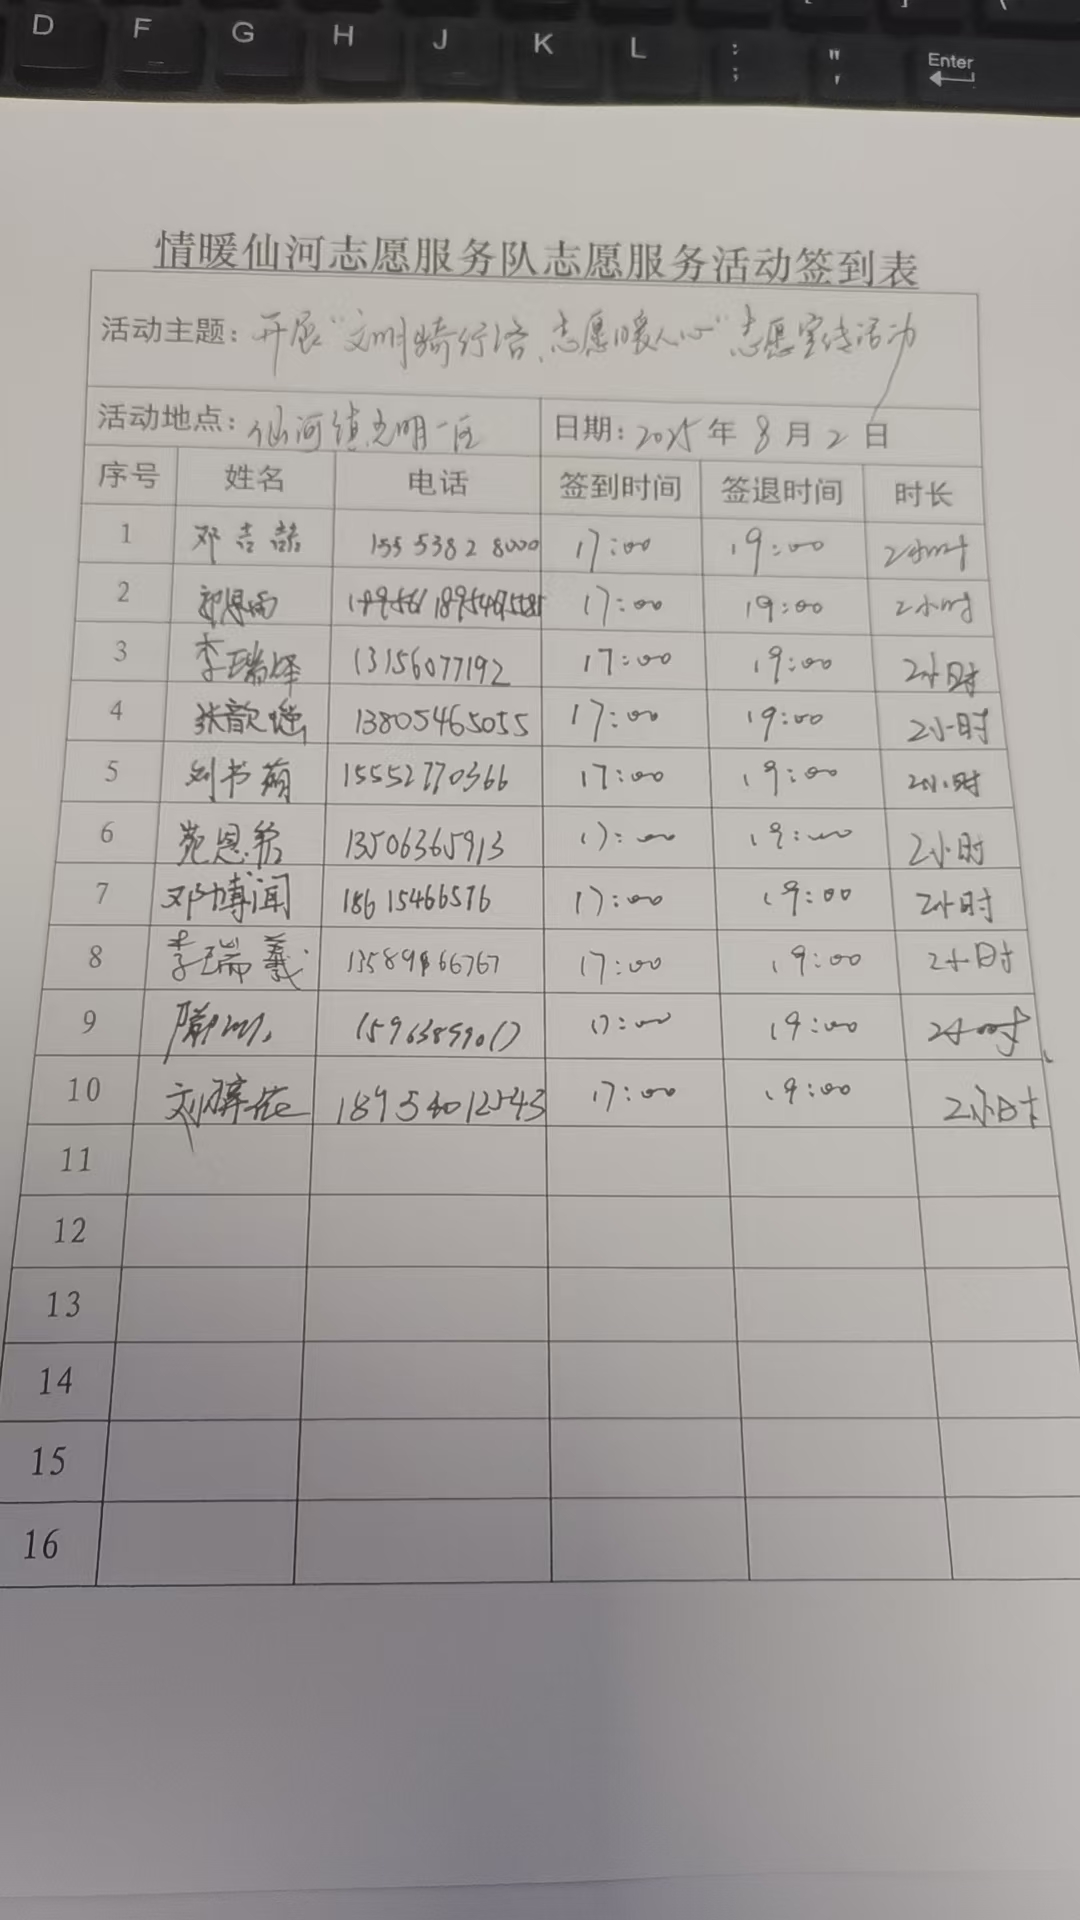 D F G H J K L : ; " ' Enter
情暖仙河志愿服务队志愿服务活动签到表
活动主题: 开展"文明骑行浴、志愿暖人心"志愿宣传活动
活动地点: 仙河镇光明一区 日期: 2025年8月2日
序号 姓名 电话 签到时间 签退时间 时长
1 邓吉喆 155 538 2 8000 17:00 19:00 2小时
2 17:00 19:00 2小时
3 李瑞泽 13156077192 17:00 19:00 2小时
4 张歆 13805465055 17:00 19:00 2小时
5 刘书萌 15552770366 17:00 19:00 2小时
6 苑恩希 13506365913 17:00 19:00 2小时
7 邓博闻 186 15466576 17:00 19:00 2小时
8 李瑞羲 13589866767 17:00 19:00 2小时
9 15963899017 17:00 19:00 2小时
10 刘梓依 18954012543 17:00 19:00 2小时
11
12
13
14
15
16